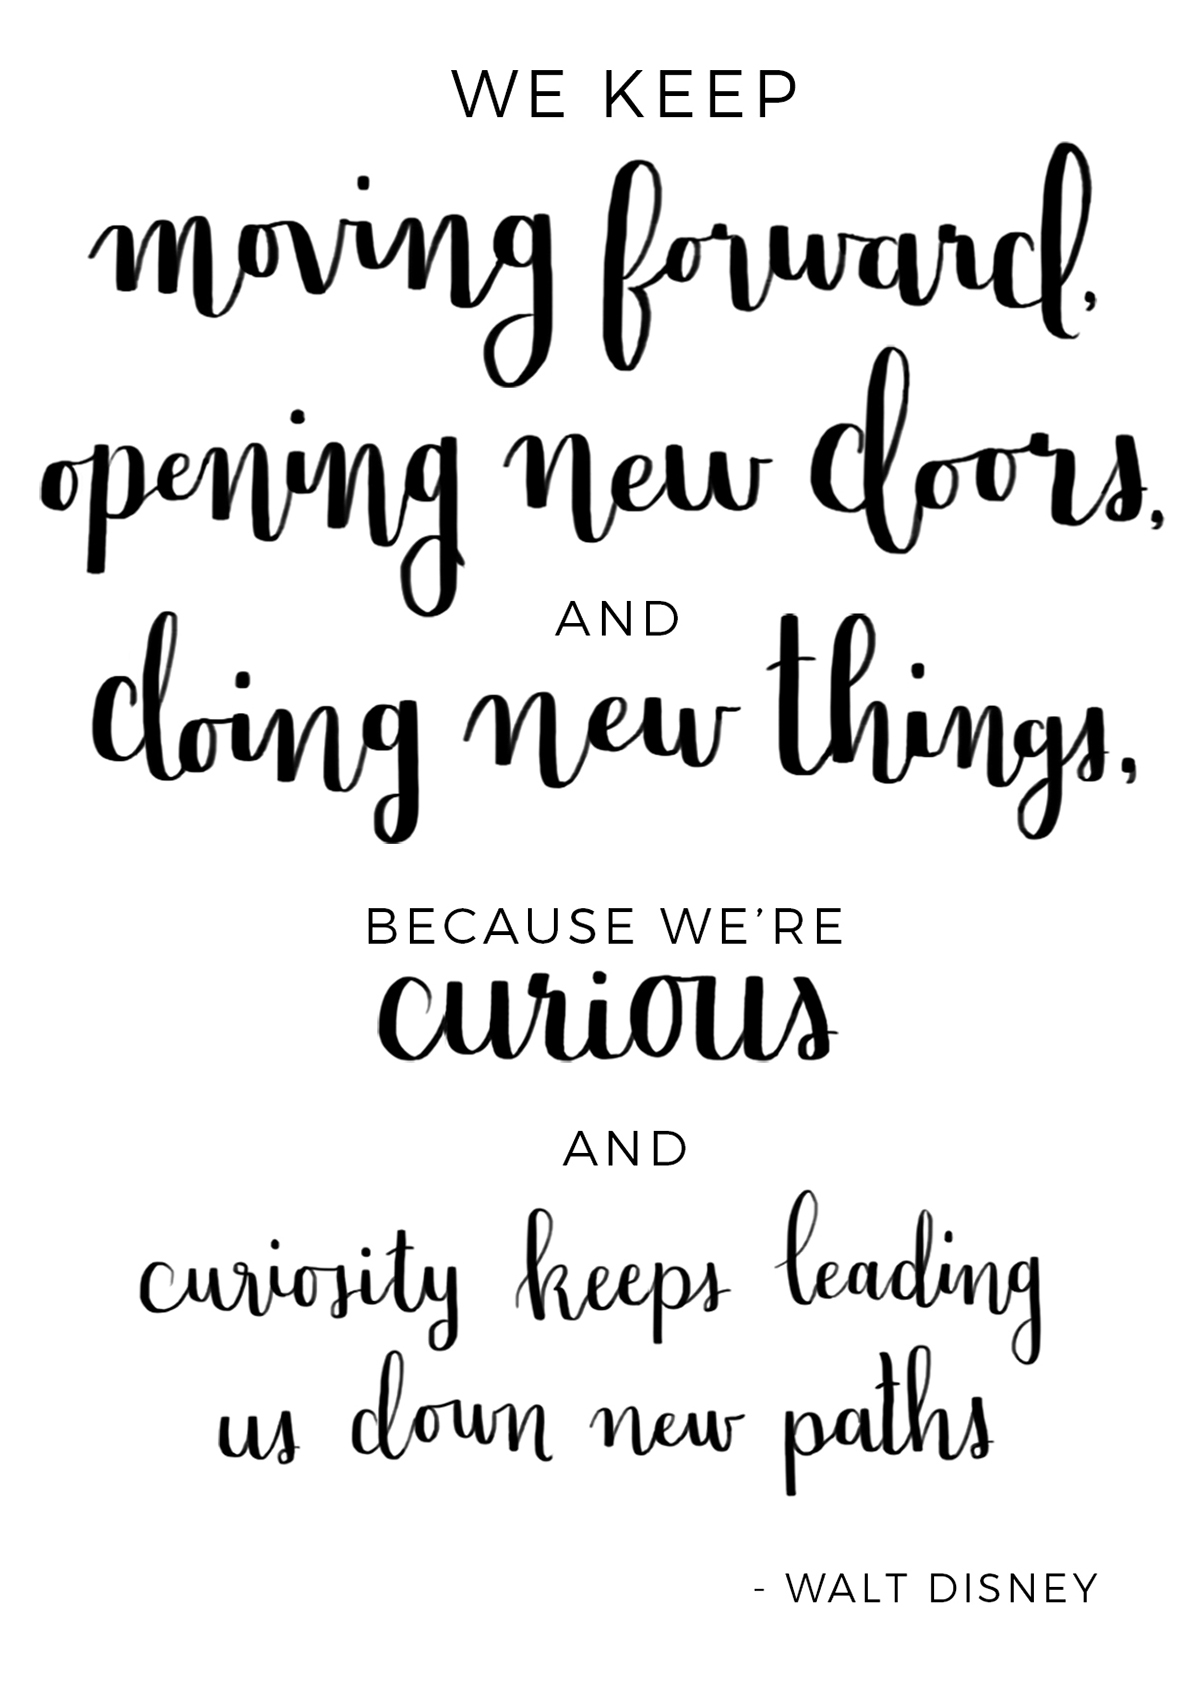 WE KEEP
moving forward,
opening new doors,
AND
doing new things,
BECAUSE WE'RE
curious
AND
curiosity keeps leading
us down new paths
- WALT DISNEY